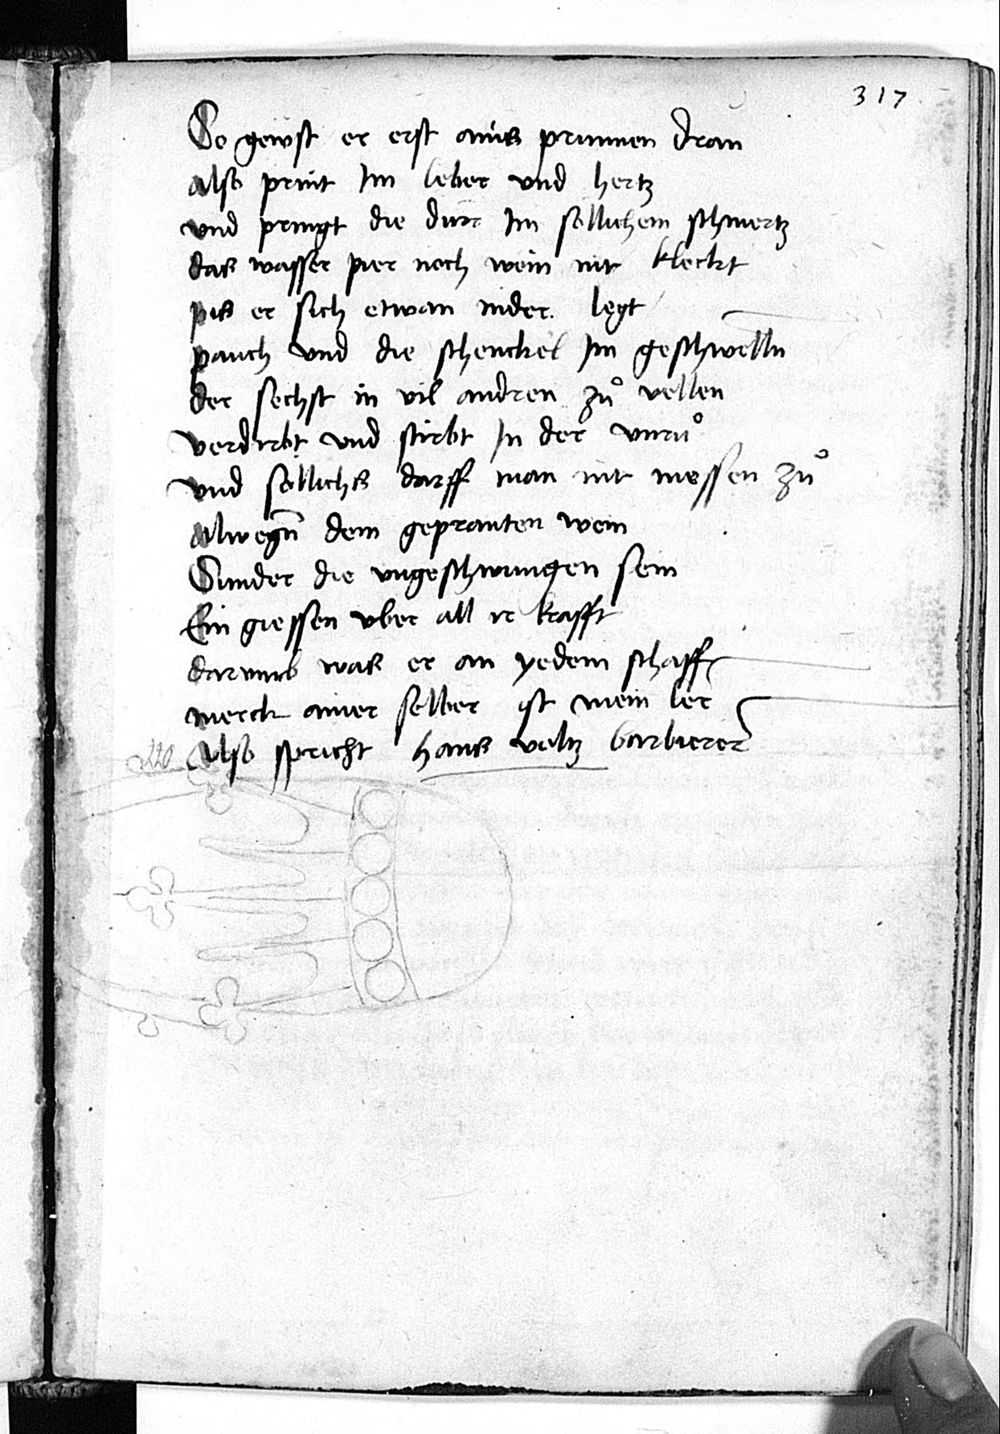 317
So gewst er erst ains prunnen dran
also print Im leber vnd hertz
vnd pringt die dürr Im sollichem schmertz
das wasser pier noch wein nit kleckt
pis er sich etwan nider legt
pauch vnd die schenckel Im geschwelln
der sechst in vil andren zuͦ vellen
verdirbt vnd stirbt In der vnruͦ
vnd sollichs darff man nit messen zuͦ
alwegn̄ dem gepranten wein
Sunder die vngeschwungen sein
Ein giessen vber all ir krafft
darumb was er an yedem schafft
merck ainer selber ist mein ler
Also spricht hans voltz barbierer